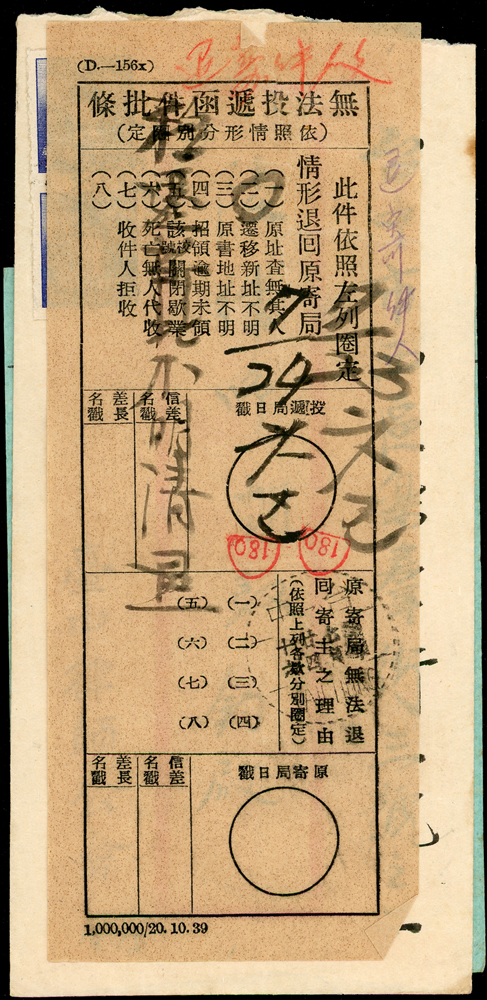 (D.—156x)
退寄件人
無法投遞函件批條
(依照情形分別圈定)
此件依照左列圈定
情形退回原寄局
(一)原址查無其人
(二)遷移新址不明
(三)原書地址不明
(四)招領逾期未領
(五)該號關閉歇業
(六)死亡無人代收
(七)收件人拒收
(八)
退寄件人
7/24
投遞局日戳
信差名戳
差長名戳
180
180
原寄局無法退
回寄主之理由
(依照上列各款分別圈定)
(一)
(二)
(三)
(四)
(五)
(六)
(七)
(八)
原寄局日戳
信差名戳
差長名戳
1,000,000/20. 10. 39